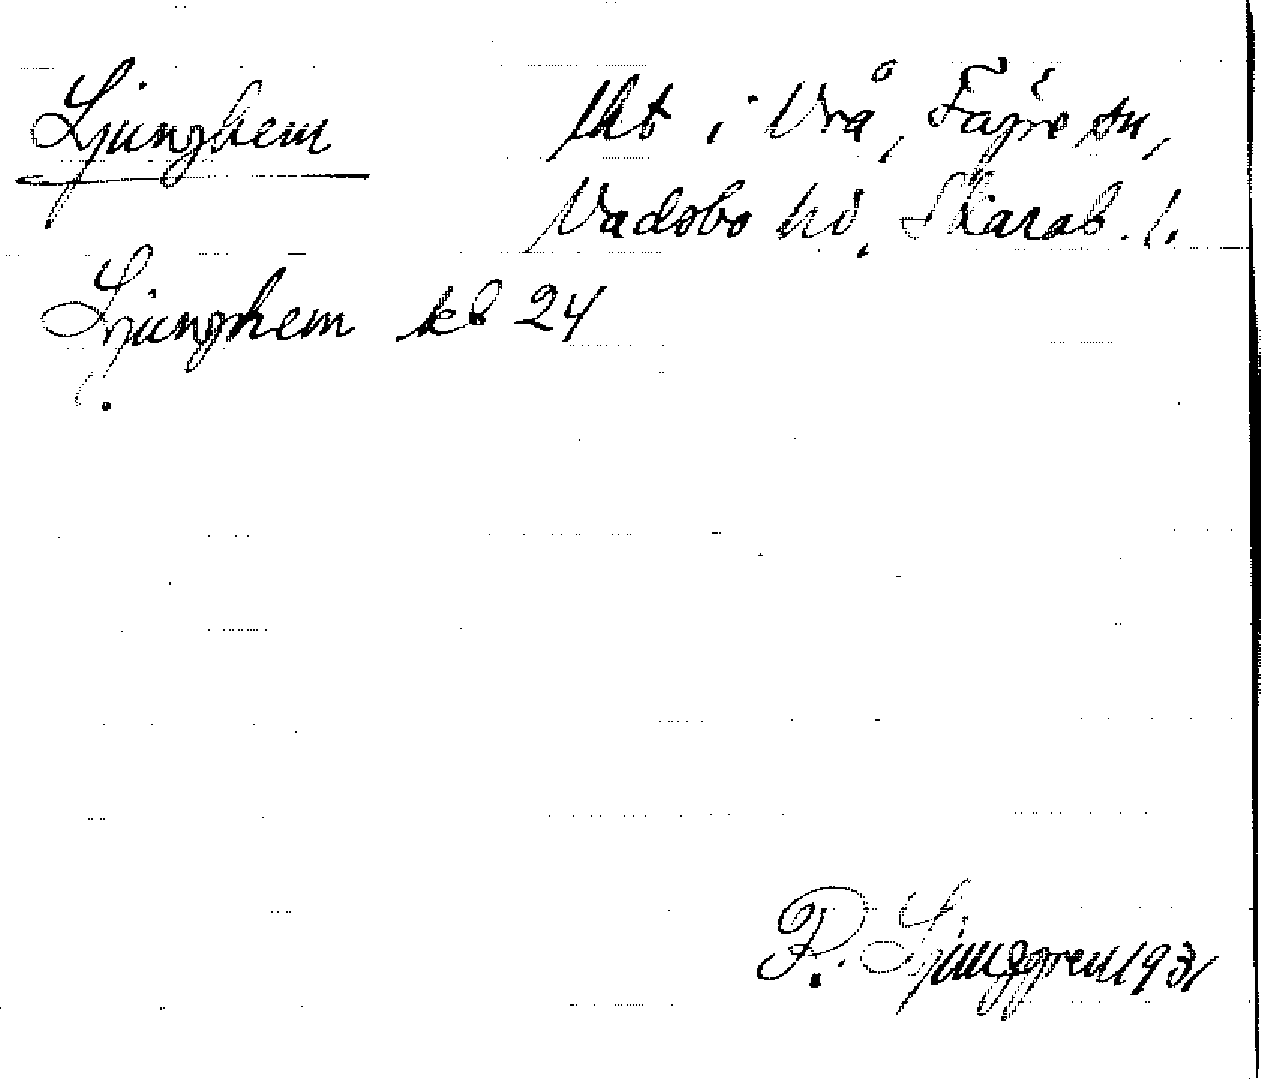 Ljunghem lht i Vrå, Fägre sn,
Vadsbo hd, Skarab. l.
Ljunghem kb 24
R. Ljunggren 1931